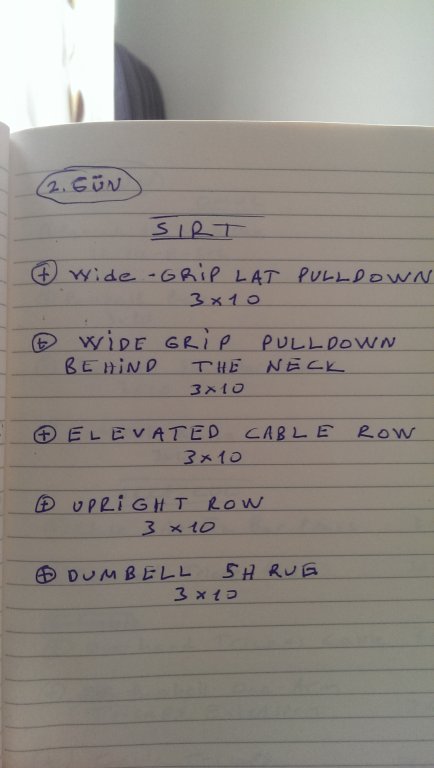 2. GÜN
SIRT
+ Wide-GRiP LAT PULLDOWN
3x10
+ WiDE GRiP PULLDOWN
BEHiND THE NECK
3x10
+ ELEVATED CABLE ROW
3x10
+ UPRiGHT ROW
3x10
+ DUMBELL SHRUG
3x10